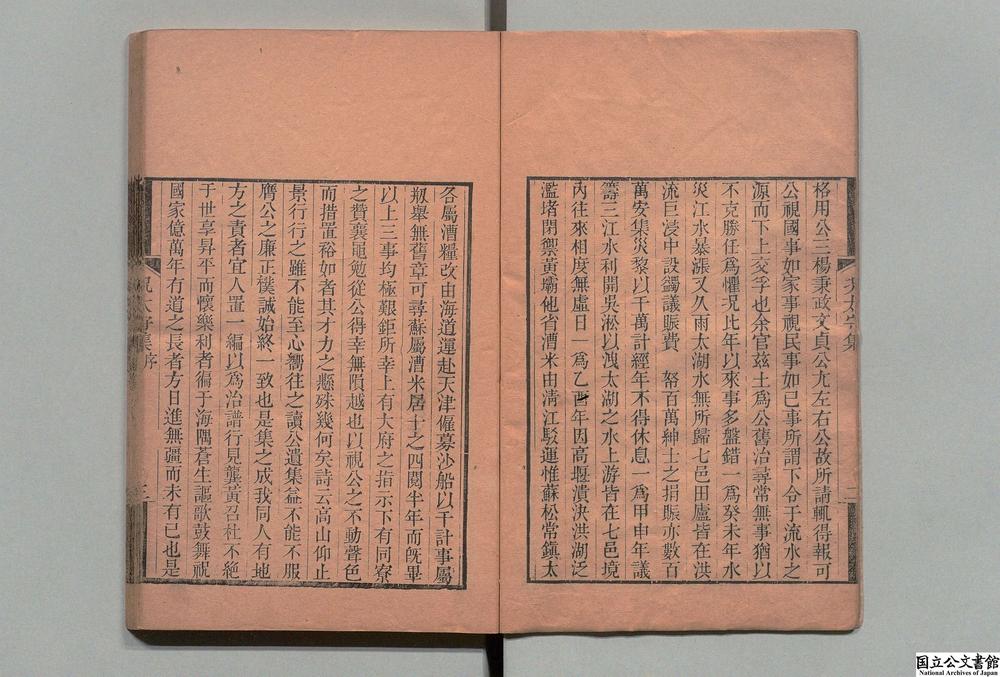 格用公三楊秉政文貞公尤左右公故所請輒得報可
公視國事如家事視民事如己事所謂下令于流水之
源而下上交孚也余官茲土為公舊治尋常無事猶以
不克勝任為懼况比年以來事多盤錯一為癸未年水
災江水暴漲又久雨太湖水無所歸七邑田廬皆在洪
流巨浸中設蠲議賑費帑百萬紳士之捐賑亦數百
萬安集災黎以千萬計經年不得休息一為甲申年議
籌三江水利開吳淞以洩太湖之水上游皆在七邑境
內往來相度無虛日一為乙酉年因高堰潰決洪湖泛
濫堵閉禦黃壩他省漕米由清江駁運惟蘇松常鎮太
各屬漕糧改由海道運赴天津僱募沙船以千計事屬
剏舉無舊章可尋蘇屬漕米居十之四閱半年而旣畢
以上三事均極艱鉅所幸上有大府之指示下有同寮
之贊襄黽勉從公得幸無隕越也以視公之不動聲色
而措置裕如者其才力之懸殊幾何矣詩云高山仰止
景行行之雖不能至心嚮往之讀公遺集益不能不服
膺公之廉正樸誠始終一致也是集之成我同人有地
方之責者宜人置一編以為治譜行見龔黃召杜不絕
于世享昇平而懷樂利者徧于海隅蒼生謳歌鼓舞祝
國家億萬年有道之長者方日進無疆而未有已也是
况太守集
序
三
国立公文書館
National Archives of Japan